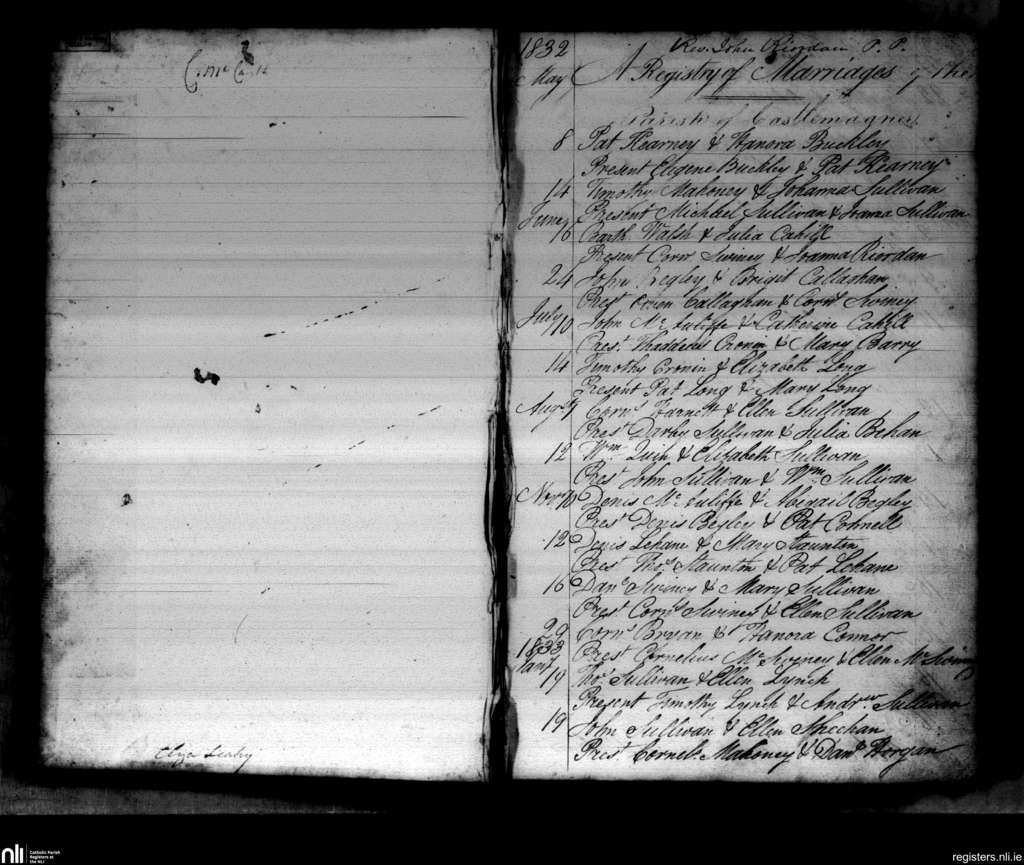 Eliza Leahy
1832 Rev. John Riordan P. P.
May A Registry of Marriages of the
Parish of Castlemagner
8 Pat Kearney & Hanora Buckley
Present Eugene Buckley & Pat Kearney
14 Timothy Mahoney & Johanna Sullivan
June Present Michael Sullivan & Joanna Sullivan
16 Barth. Walsh & Julia Cahill
Present Corns Swiney & Joanna Riordan
24 John Begley & Brigit Callaghan
Prest Owen Callaghan & Corns Swiney
July 10 John Mc Auliffe & Catherine Cahill
Prest Thaddeus Cronin & Mary Barry
14 Timothy Cronin & Elizabeth Long
Present Pat Long & Mary Long
Augst 7 Corns Harnett & Ellen Sullivan
Prest Darby Sullivan & Julia Behan
12 Wm Quin & Elizabeth Sullivan
Prest John Sullivan & Wm Sullivan
Novr 10 Denis Mc Auliffe & Abigail Begley
Prest Denis Begley & Pat Connell
12 Denis Lehane & Mary Staunton
Prest Thos Staunton & Pat Lehane
16 Danl Swiney & Mary Sullivan
Prest Corns Swiney & Ellen Sullivan
29 Corns Bryan & Hanora Connor
1833 Prest Cornelius Mc Swyney & Ellen Mc Swiney
Jany 19 Thos Sullivan & Ellen Lynch
Present Timothy Lynch & Andrew Sullivan
19 John Sullivan & Ellen Sheehan
Prest Cornels Mahoney & Danl Horgan
nli Catholic Parish
Registers at
the NLI
registers.nli.ie